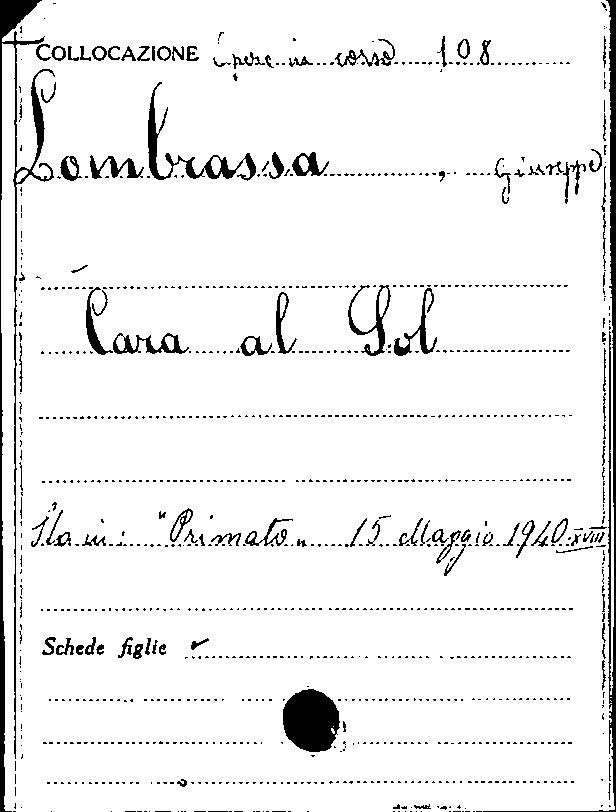 COLLOCAZIONE Opere in corso 108
Lombrassa, Giuseppe
Cara al Sol
Sta in: "Primato„ 15 Maggio 1940·XVIII
Schede figlie